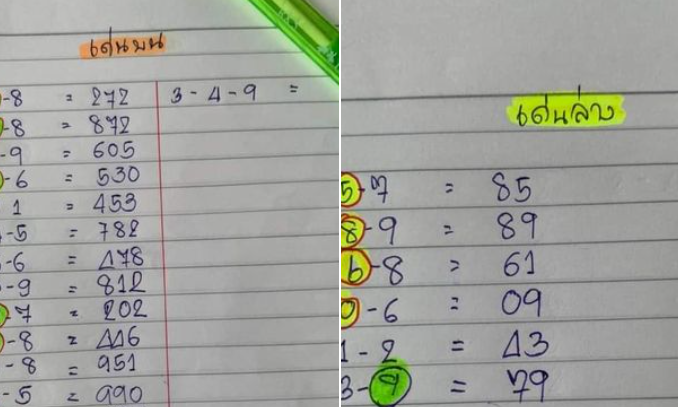 เด่นบน
-8 = 272
3-4-9 =
-8 = 872
-9 = 605
-6 = 530
1 = 453
-5 = 782
-6 = 178
-9 = 812
-7 = 202
-8 = 116
-8 = 951
-5 = 990
เด่นล่าง
5-7 = 85
8-9 = 89
6-8 = 61
0-6 = 09
1-2 = 13
3-9 = 79